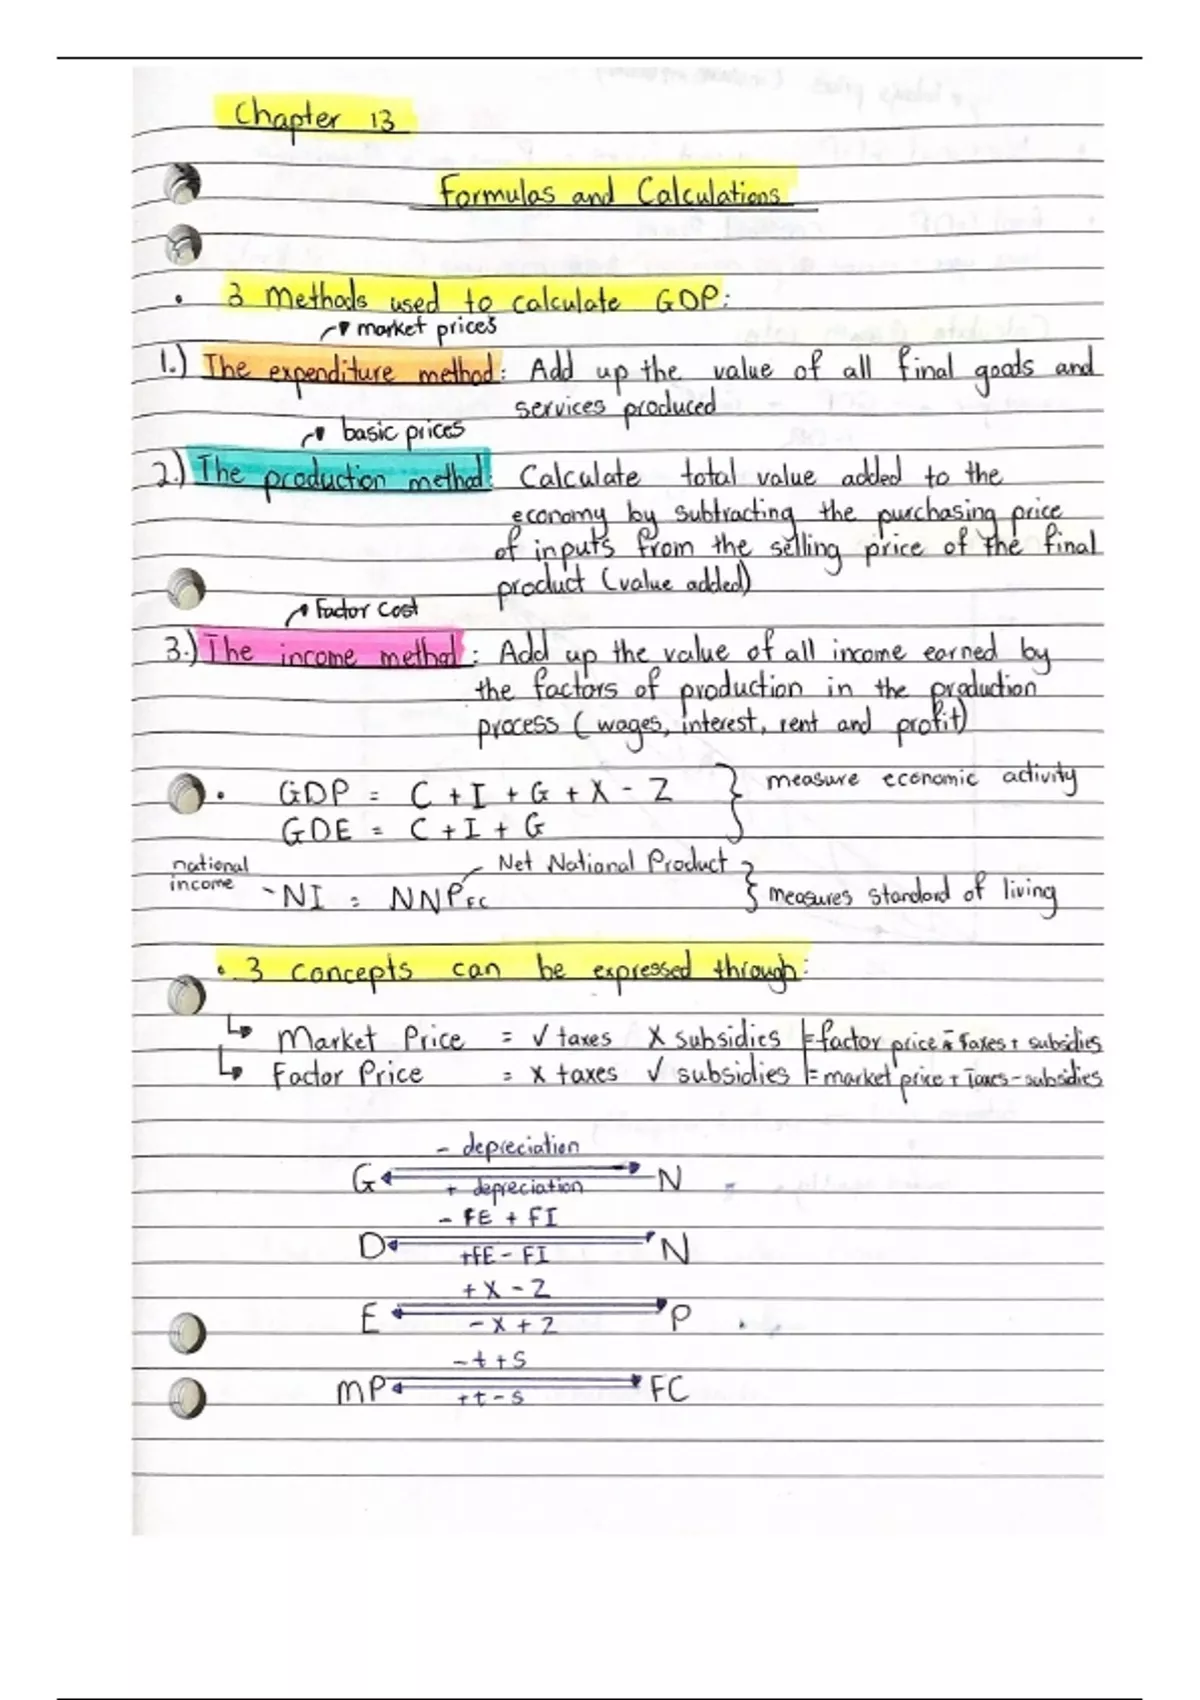 Chapter 13
Formulas and Calculations
• 3 Methods used to calculate GDP:
market prices
1.) The expenditure method: Add up the value of all final goods and
services produced
basic prices
2.) The production method: Calculate total value added to the
economy by subtracting the purchasing price
of inputs from the selling price of the final
product (value added)
Factor Cost
3.) The income method: Add up the value of all income earned by
the factors of production in the production
process (wages, interest, rent and profit)
• GDP = C + I + G + X - Z } measure economic activity
GDE = C + I + G
national income - NI = NNPFC Net National Product } measures standard of living
• 3 concepts can be expressed through:
↳ Market Price = √ taxes X subsidies = factor price Taxes + subsidies
↳ Factor Price = X taxes √ subsidies = market price + Taxes - subsidies
- depreciation
G N
+ depreciation
- FE + FI
D N
+FE - FI
+ X - Z
E P
- X + Z
- t + s
MP FC
+ t - s